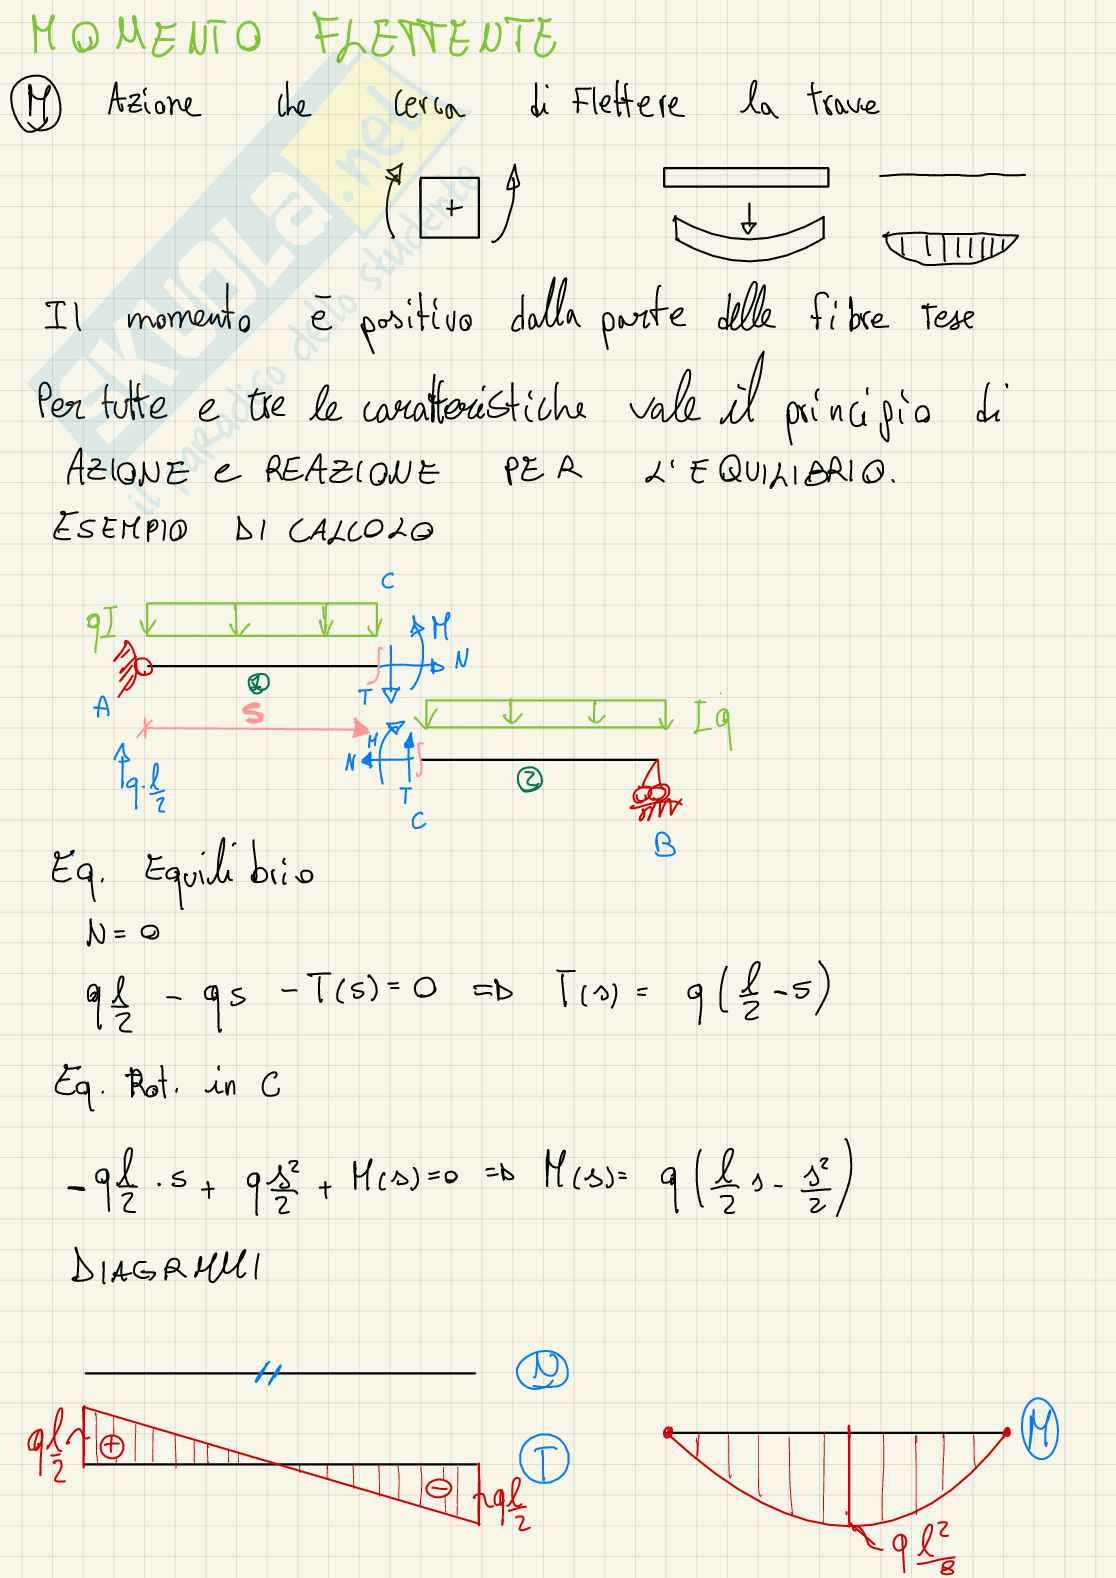 MOMENTO FLETTENTE
M Azione che cerca di Flettere la trave
+
Il momento è positivo dalla parte delle fibre tese
Per tutte e tre le caratteristiche vale il principio di
AZIONE e REAZIONE PER L'EQUILIBRIO.
ESEMPIO DI CALCOLO
C
qI
M
N
A
1
T
S
Iq
M
N
q·l/2
T
2
C
B
Eq. Equilibrio
N = 0
q l/2 - qs - T(s) = 0 => T(s) = q(l/2 - s)
Eq. Rot. in C
-q l/2 · s + q s²/2 + M(s) = 0 => M(s) = q(l/2 s - s²/2)
DIAGRAMMI
N
q l/2
+
T
-
q l/2
M
q l²/8
SKUOLA.net
il paradiso dello studente